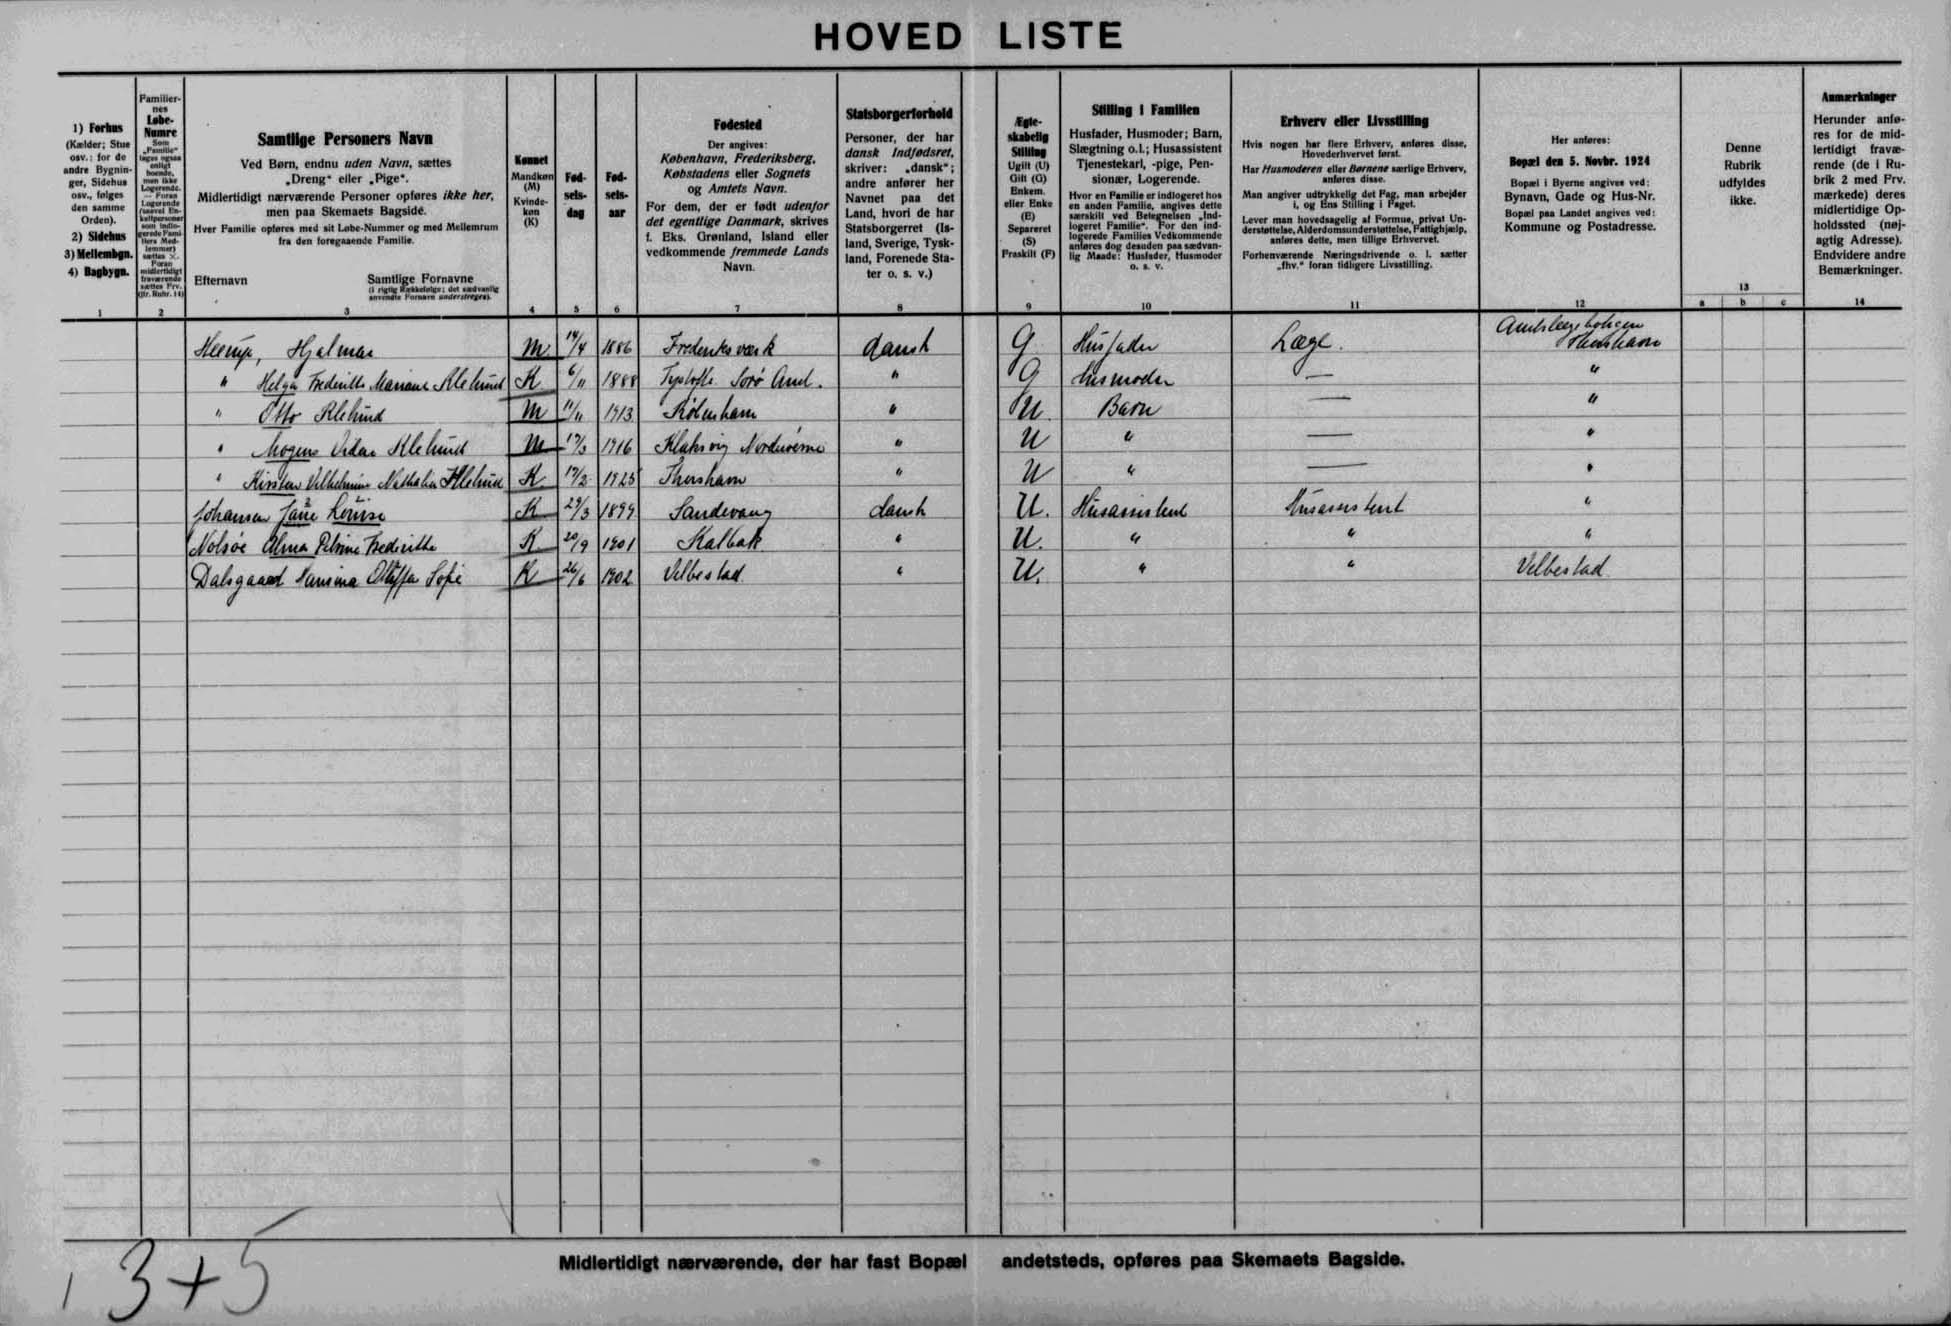 HOVED LISTE
1) Forhus
(Kælder; Stue
osv.; for de
andre Bygnin-
ger, Sidehus
osv., følges
den samme
Orden).
2) Sidehus
3) Mellembgn.
4) Bagbygn.
Familier-
nes
Løbe-
Numre
Som
„Familie“
tages ogsaa
enligt
boende,
men ikke
Logerende.
— Foran
Logerende
(saavel En-
keltpersoner
som indlo-
gerede Fami-
liers Med-
lemmer)
sættes ×.
Foran
midlertidigt
fraværende
sættes Frv.
(jfr. Rubr. 14)
Samtlige Personers Navn
Ved Børn, endnu uden Navn, sættes
„Dreng“ eller „Pige“.
Midlertidigt nærværende Personer opføres ikke her,
men paa Skemaets Bagside.
Hver Familie opføres med sit Løbe-Nummer og med Mellemrum
fra den foregaaende Familie.
Efternavn Samtlige Fornavne
(i rigtig Rækkefølge; det sædvanlig
anvendte Fornavn understreges).
Kønnet
Mandkøn
(M)
Kvinde-
køn
(K)
Fød-
sels-
dag
Fød-
sels-
aar
Fødested
Der angives:
København, Frederiksberg,
Købstadens eller Sognets
og Amtets Navn.
For dem, der er født udenfor
det egentlige Danmark, skrives
f. Eks. Grønland, Island eller
vedkommende fremmede Lands
Navn.
Statsborgerforhold
Personer, der har
dansk Indfødsret,
skriver: „dansk“;
andre anfører her
Navnet paa det
Land, hvori de har
Statsborgerret (Is-
land, Sverige, Tysk-
land, Forenede Sta-
ter o. s. v.)
Ægte-
skabelig
Stilling
Ugift (U)
Gift (G)
Enkem.
eller Enke
(E)
Separeret
(S)
Fraskilt (F)
Stilling i Familien
Husfader, Husmoder; Barn,
Slægtning o.l.; Husassistent
Tjenestekarl, -pige, Pen-
sionær, Logerende.
Hvor en Familie er indlogeret hos
en anden Familie, angives dette
særskilt ved Betegnelsen „Ind-
logeret Familie“. For den ind-
logerede Families Vedkommende
anføres dog desuden paa sædvan-
lig Maade: Husfader, Husmoder
o. s. v.
Erhverv eller Livsstilling
Hvis nogen har flere Erhverv, anføres disse,
Hovederhvervet først.
Har Husmoderen eller Børnene særlige Erhverv,
anføres disse.
Man angiver udtrykkelig det Fag, man arbejder
i, og Ens Stilling i Faget.
Lever man hovedsagelig af Formue, privat Un-
derstøttelse, Alderdomsunderstøttelse, Fattighjælp,
anføres dette, men tillige Erhvervet.
Forhenværende Næringsdrivende o. l. sætter
„fhv.“ foran tidligere Livsstilling.
Her anføres:
Bopæl den 5. Novbr. 1924
Bopæl i Byerne angives ved:
Bynavn, Gade og Hus-Nr.
Bopæl paa Landet angives ved:
Kommune og Postadresse.
Denne
Rubrik
udfyldes
ikke.
Anmærkninger
Herunder anfø-
res for de mid-
lertidigt fravæ-
rende (de i Ru-
brik 2 med Frv.
mærkede) deres
midlertidige Op-
holdssted (nøj-
agtig Adresse).
Endvidere andre
Bemærkninger.
1 2 3 4 5 6 7 8 9 10 11 12 13 a b c 14
Heerup, Hjalmar M 14/4 1886 Frederiksværk dansk G Husfader Læge. Amtslægeboligen Thorshavn
" Helga Frederikke Mariane Klehund K 6/11 1888 Sorø Amt. " G Husmoder — "
" Otto Klehund M 11/11 1913 København " U Barn — "
" Mogens Vidar Klehund M 19/3 1916 Klaksvig Norderøerne " U " — "
" Kirsten Vilhelmine Nathalia Klehund K 19/2 1925 Thorshavn " U " — "
Johansen Jane Louise K 29/3 1899 Sandevaag dansk U. Husassistent Husassistent "
Nolsøe Alma Petrine Frederikke K 20/9 1901 Kalbak " U. " " "
Dalsgaard Hansina Sofie K 26/6 1902 Velbestad " U. " " Velbestad
Midlertidigt nærværende, der har fast Bopæl andetsteds, opføres paa Skemaets Bagside.
3+5